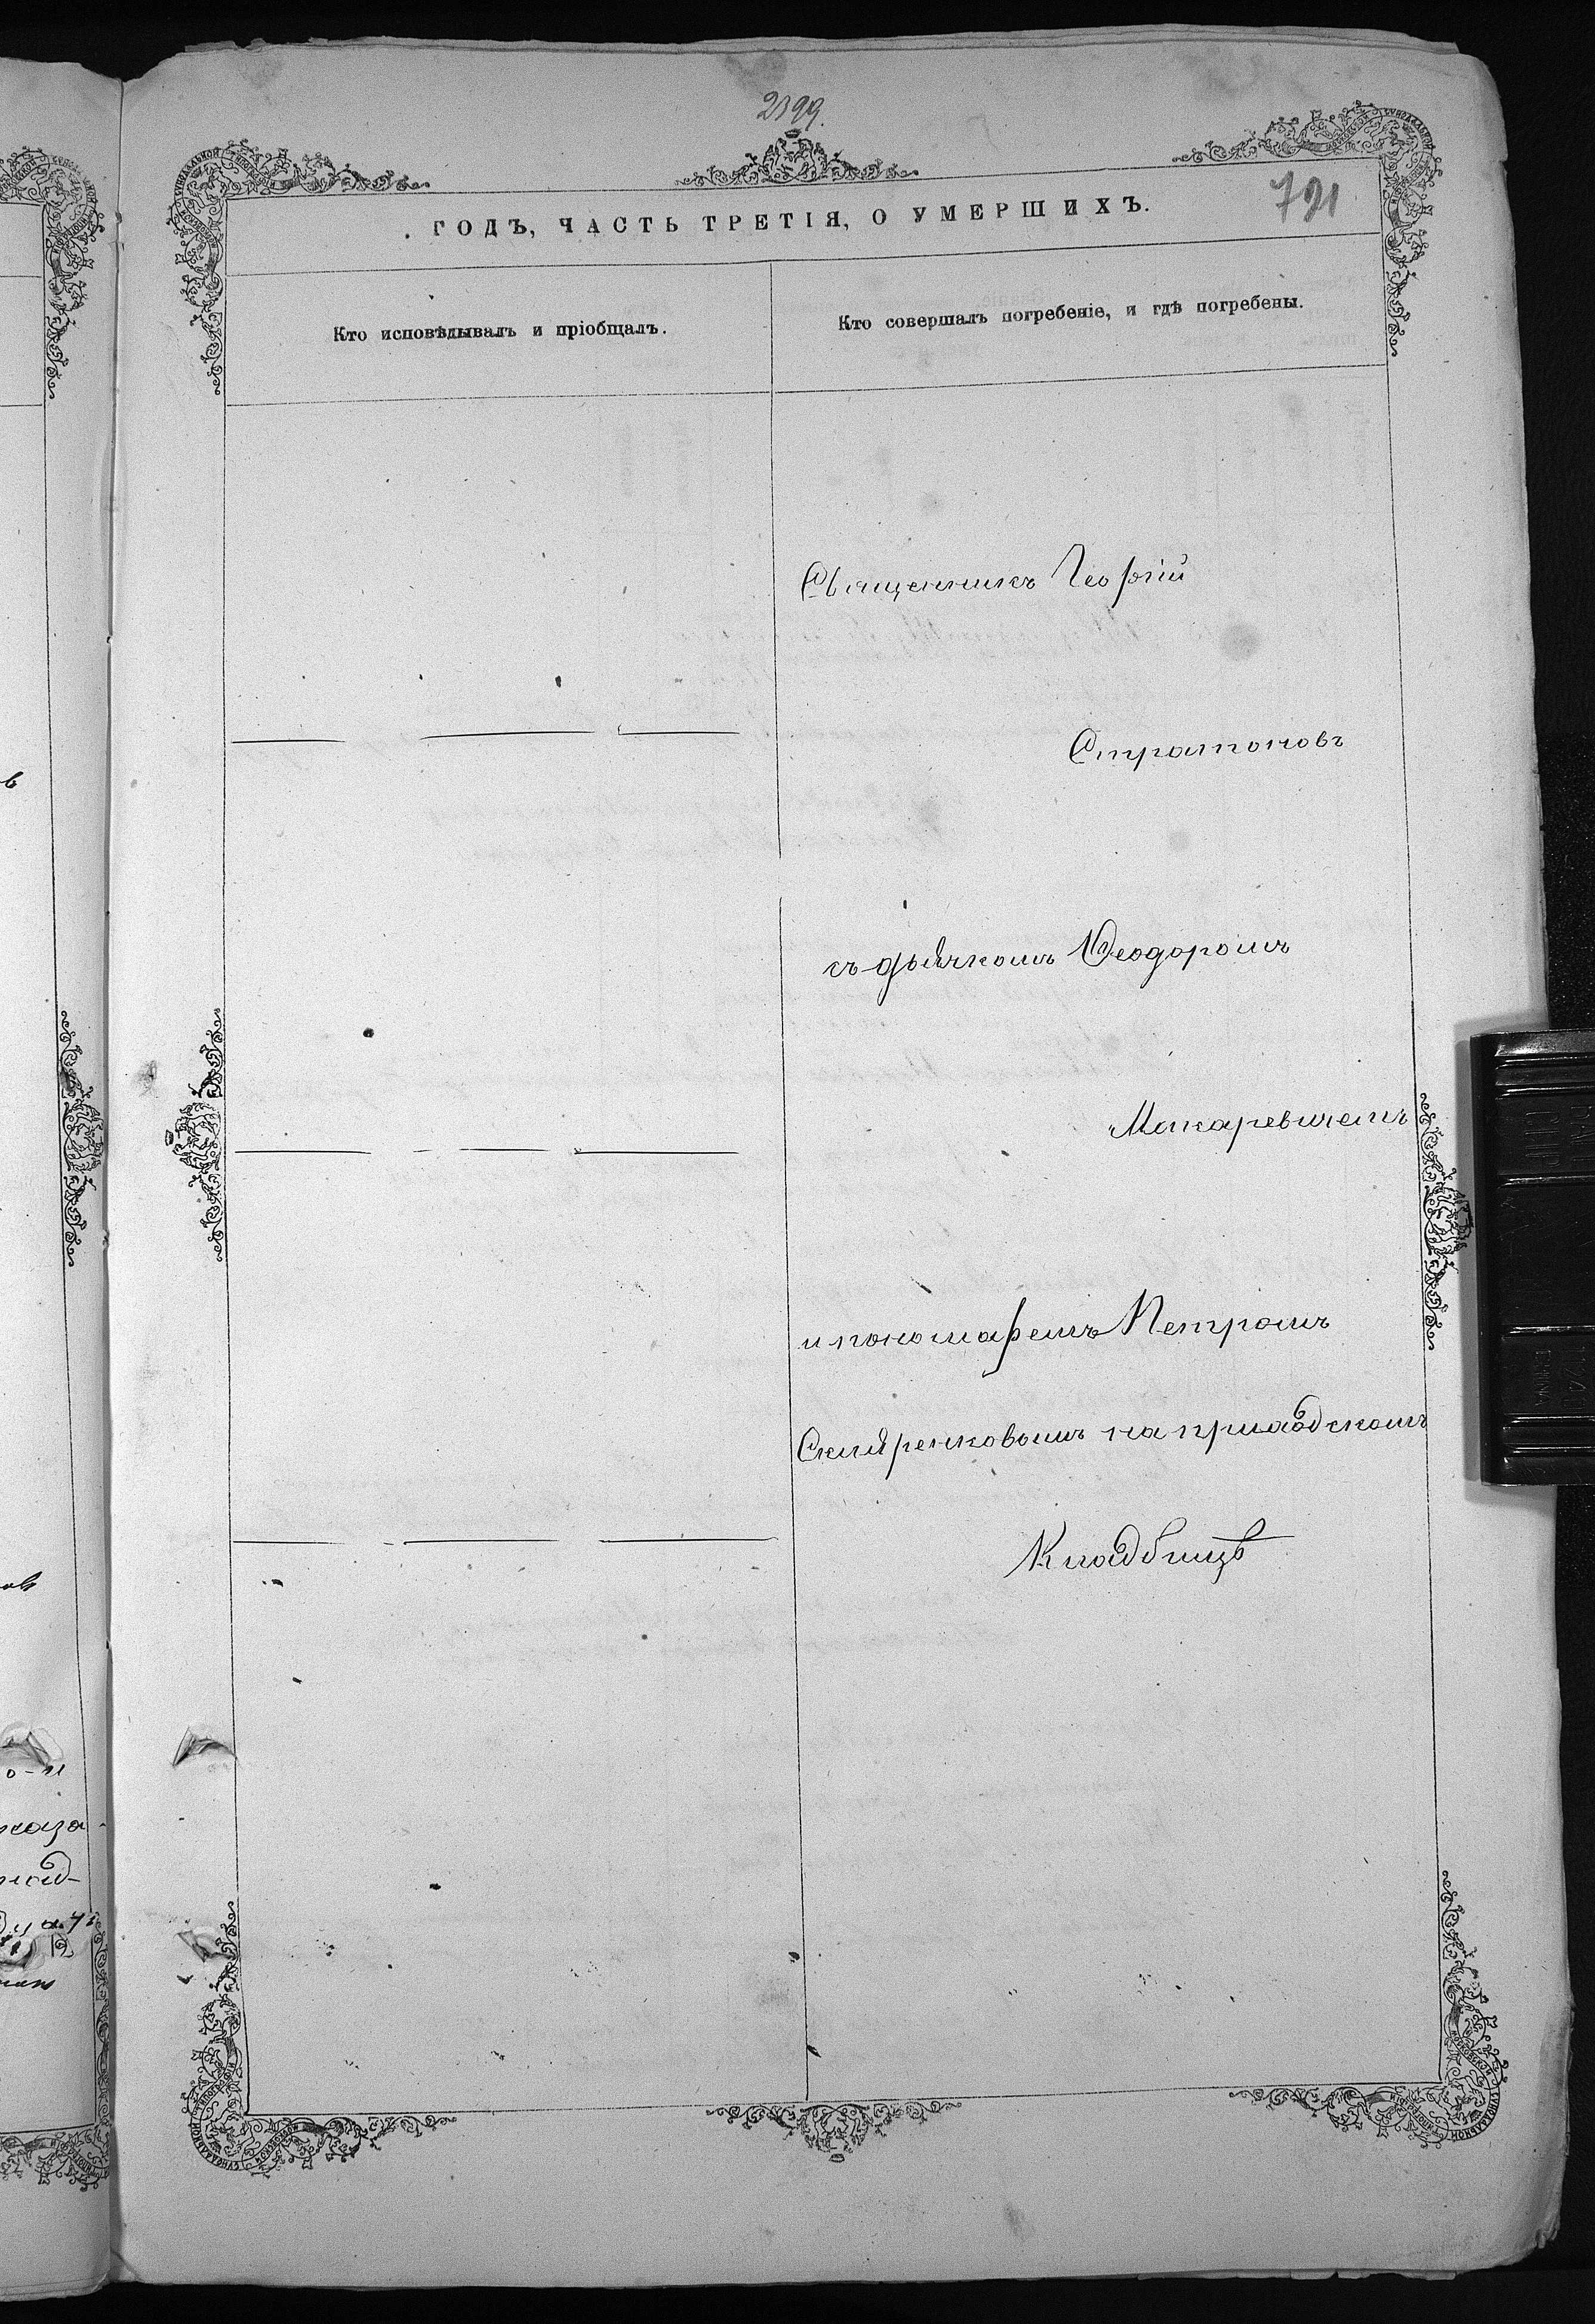 2399.
721
ГОДЪ, ЧАСТЬ ТРЕТІЯ, О УМЕРШИХЪ.
Кто исповѣдывалъ и пріобщалъ.
Кто совершалъ погребеніе, и гдѣ погребены.
Священникъ Георгій
Стратоновъ
съ дьячкомъ Ѳеодоромъ
Макаревичемъ
и пономаремъ Петромъ
на приходскомъ
Кладбищѣ